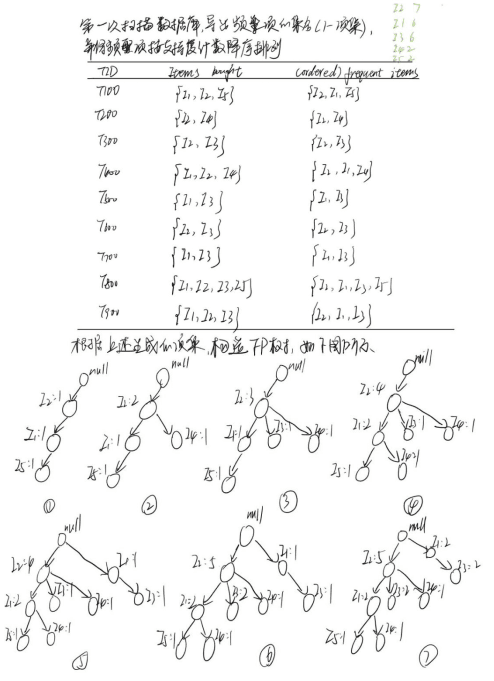 I2 7
I1 6
I3 6
I4 2
I5 2
第一次扫描数据库,导出频繁项的集合(1-项集),
将频繁项按支持度计数降序排列
TID Items bought (ordered) frequent items
T100 {I1, I2, I5} {I2, I1, I5}
T200 {I2, I4} {I2, I4}
T300 {I2, I3} {I2, I3}
T400 {I1, I2, I4} {I2, I1, I4}
T500 {I1, I3} {I1, I3}
T600 {I2, I3} {I2, I3}
T700 {I1, I3} {I1, I3}
T800 {I1, I2, I3, I5} {I2, I1, I3, I5}
T900 {I1, I2, I3} {I2, I1, I3}
根据上述生成的项集,构造FP树,如下图所示、
null
I2:1
I1:1
I5:1
①
null
I2:2
I1:1 I4:1
I5:1
②
null
I2:3
I1:1 I3:1 I4:1
I5:1
③
null
I2:4
I1:2 I3:1 I4:1
I5:1 I4:1
④
null
I2:4 I1:1
I1:2 I3:1 I4:1 I3:1
I5:1 I4:1
⑤
null
I2:5 I1:1
I1:2 I3:2 I4:1 I3:1
I5:1 I4:1
⑥
null
I2:5 I1:2
I1:2 I3:2 I4:1 I3:2
I5:1 I4:1
⑦